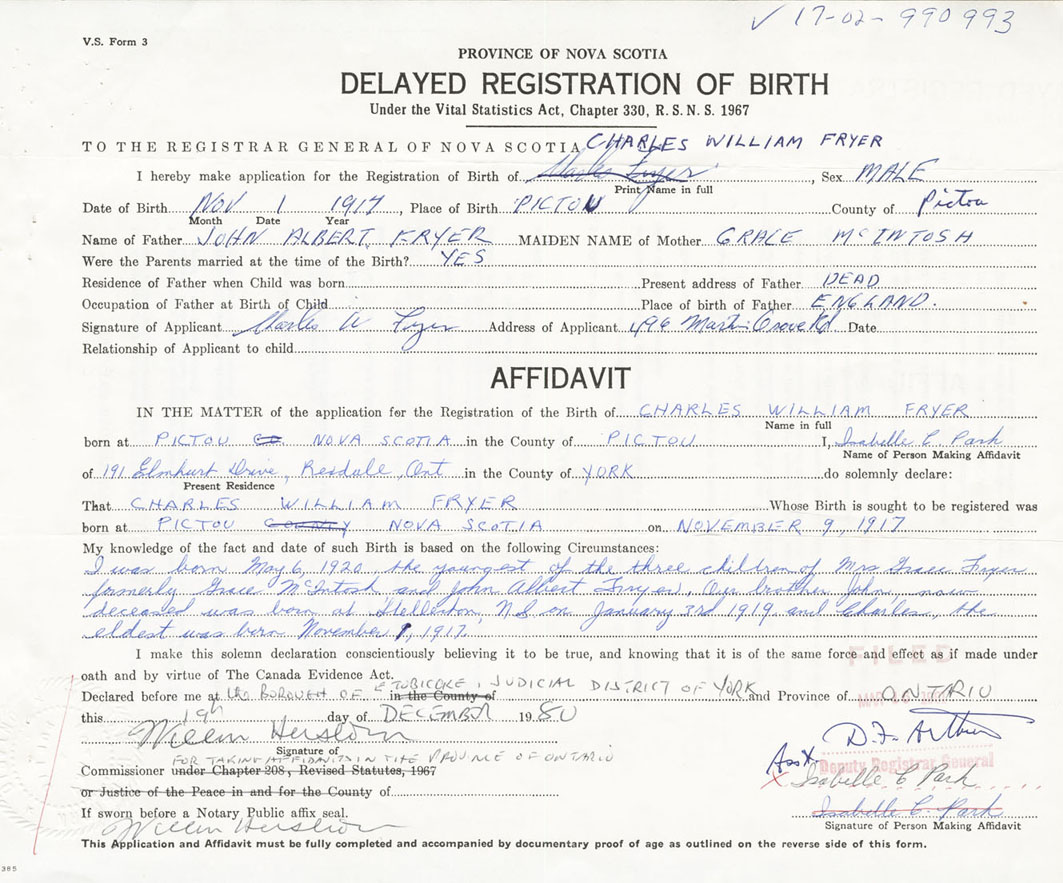 ✓ 17-02-990 993
V.S. Form 3
PROVINCE OF NOVA SCOTIA
DELAYED REGISTRATION OF BIRTH
Under the Vital Statistics Act, Chapter 330, R.S.N.S. 1967
TO THE REGISTRAR GENERAL OF NOVA SCOTIA CHARLES WILLIAM FRYER
I hereby make application for the Registration of Birth of Charles Fryer, Sex MALE
Print Name in full
Date of Birth NOV 1 1917, Place of Birth PICTOU County of Pictou
Month Date Year
Name of Father JOHN ALBERT FRYER MAIDEN NAME of Mother GRACE McINTOSH
Were the Parents married at the time of the Birth? YES
Residence of Father when Child was born Present address of Father DEAD
Occupation of Father at Birth of Child Place of birth of Father ENGLAND.
Signature of Applicant Charles W Fryer Address of Applicant 496 Martin Grove Rd Date
Relationship of Applicant to child
AFFIDAVIT
IN THE MATTER of the application for the Registration of the Birth of CHARLES WILLIAM FRYER
Name in full
born at PICTOU Co NOVA SCOTIA in the County of PICTOU I, Isabelle C Park
Name of Person Making Affidavit
of 191 Elmhurst Drive, Rexdale, Ont in the County of YORK do solemnly declare:
Present Residence
That CHARLES WILLIAM FRYER Whose Birth is sought to be registered was
born at PICTOU COUNTY NOVA SCOTIA on NOVEMBER 9, 1917
My knowledge of the fact and date of such Birth is based on the following Circumstances:
I was born May 6, 1920, the youngest of the three children of Mrs Grace Fryer
formerly Grace McIntosh and John Albert Fryer. Our brother John, now
deceased was born at Stellerton, N.S. on January 3rd 1919 and Charles, the
eldest was born November 1, 1917.
I make this solemn declaration conscientiously believing it to be true, and knowing that it is of the same force and effect as if made under
FILED
oath and by virtue of The Canada Evidence Act.
Declared before me at the BOROUGH OF ETOBICOKE, in the County of JUDICIAL DISTRICT OF YORK and Province of ONTARIO
this 19th day of DECEMBER 1980
D.F. Arthur
Signature of
FOR TAKING AFFIDAVITS IN THE PROVINCE OF ONTARIO
Asst Deputy Registrar General
Commissioner under Chapter 208, Revised Statutes, 1967
x Isabelle C Park
or Justice of the Peace in and for the County of
Isabelle C. Park
If sworn before a Notary Public affix seal.
Signature of Person Making Affidavit
This Application and Affidavit must be fully completed and accompanied by documentary proof of age as outlined on the reverse side of this form.
385